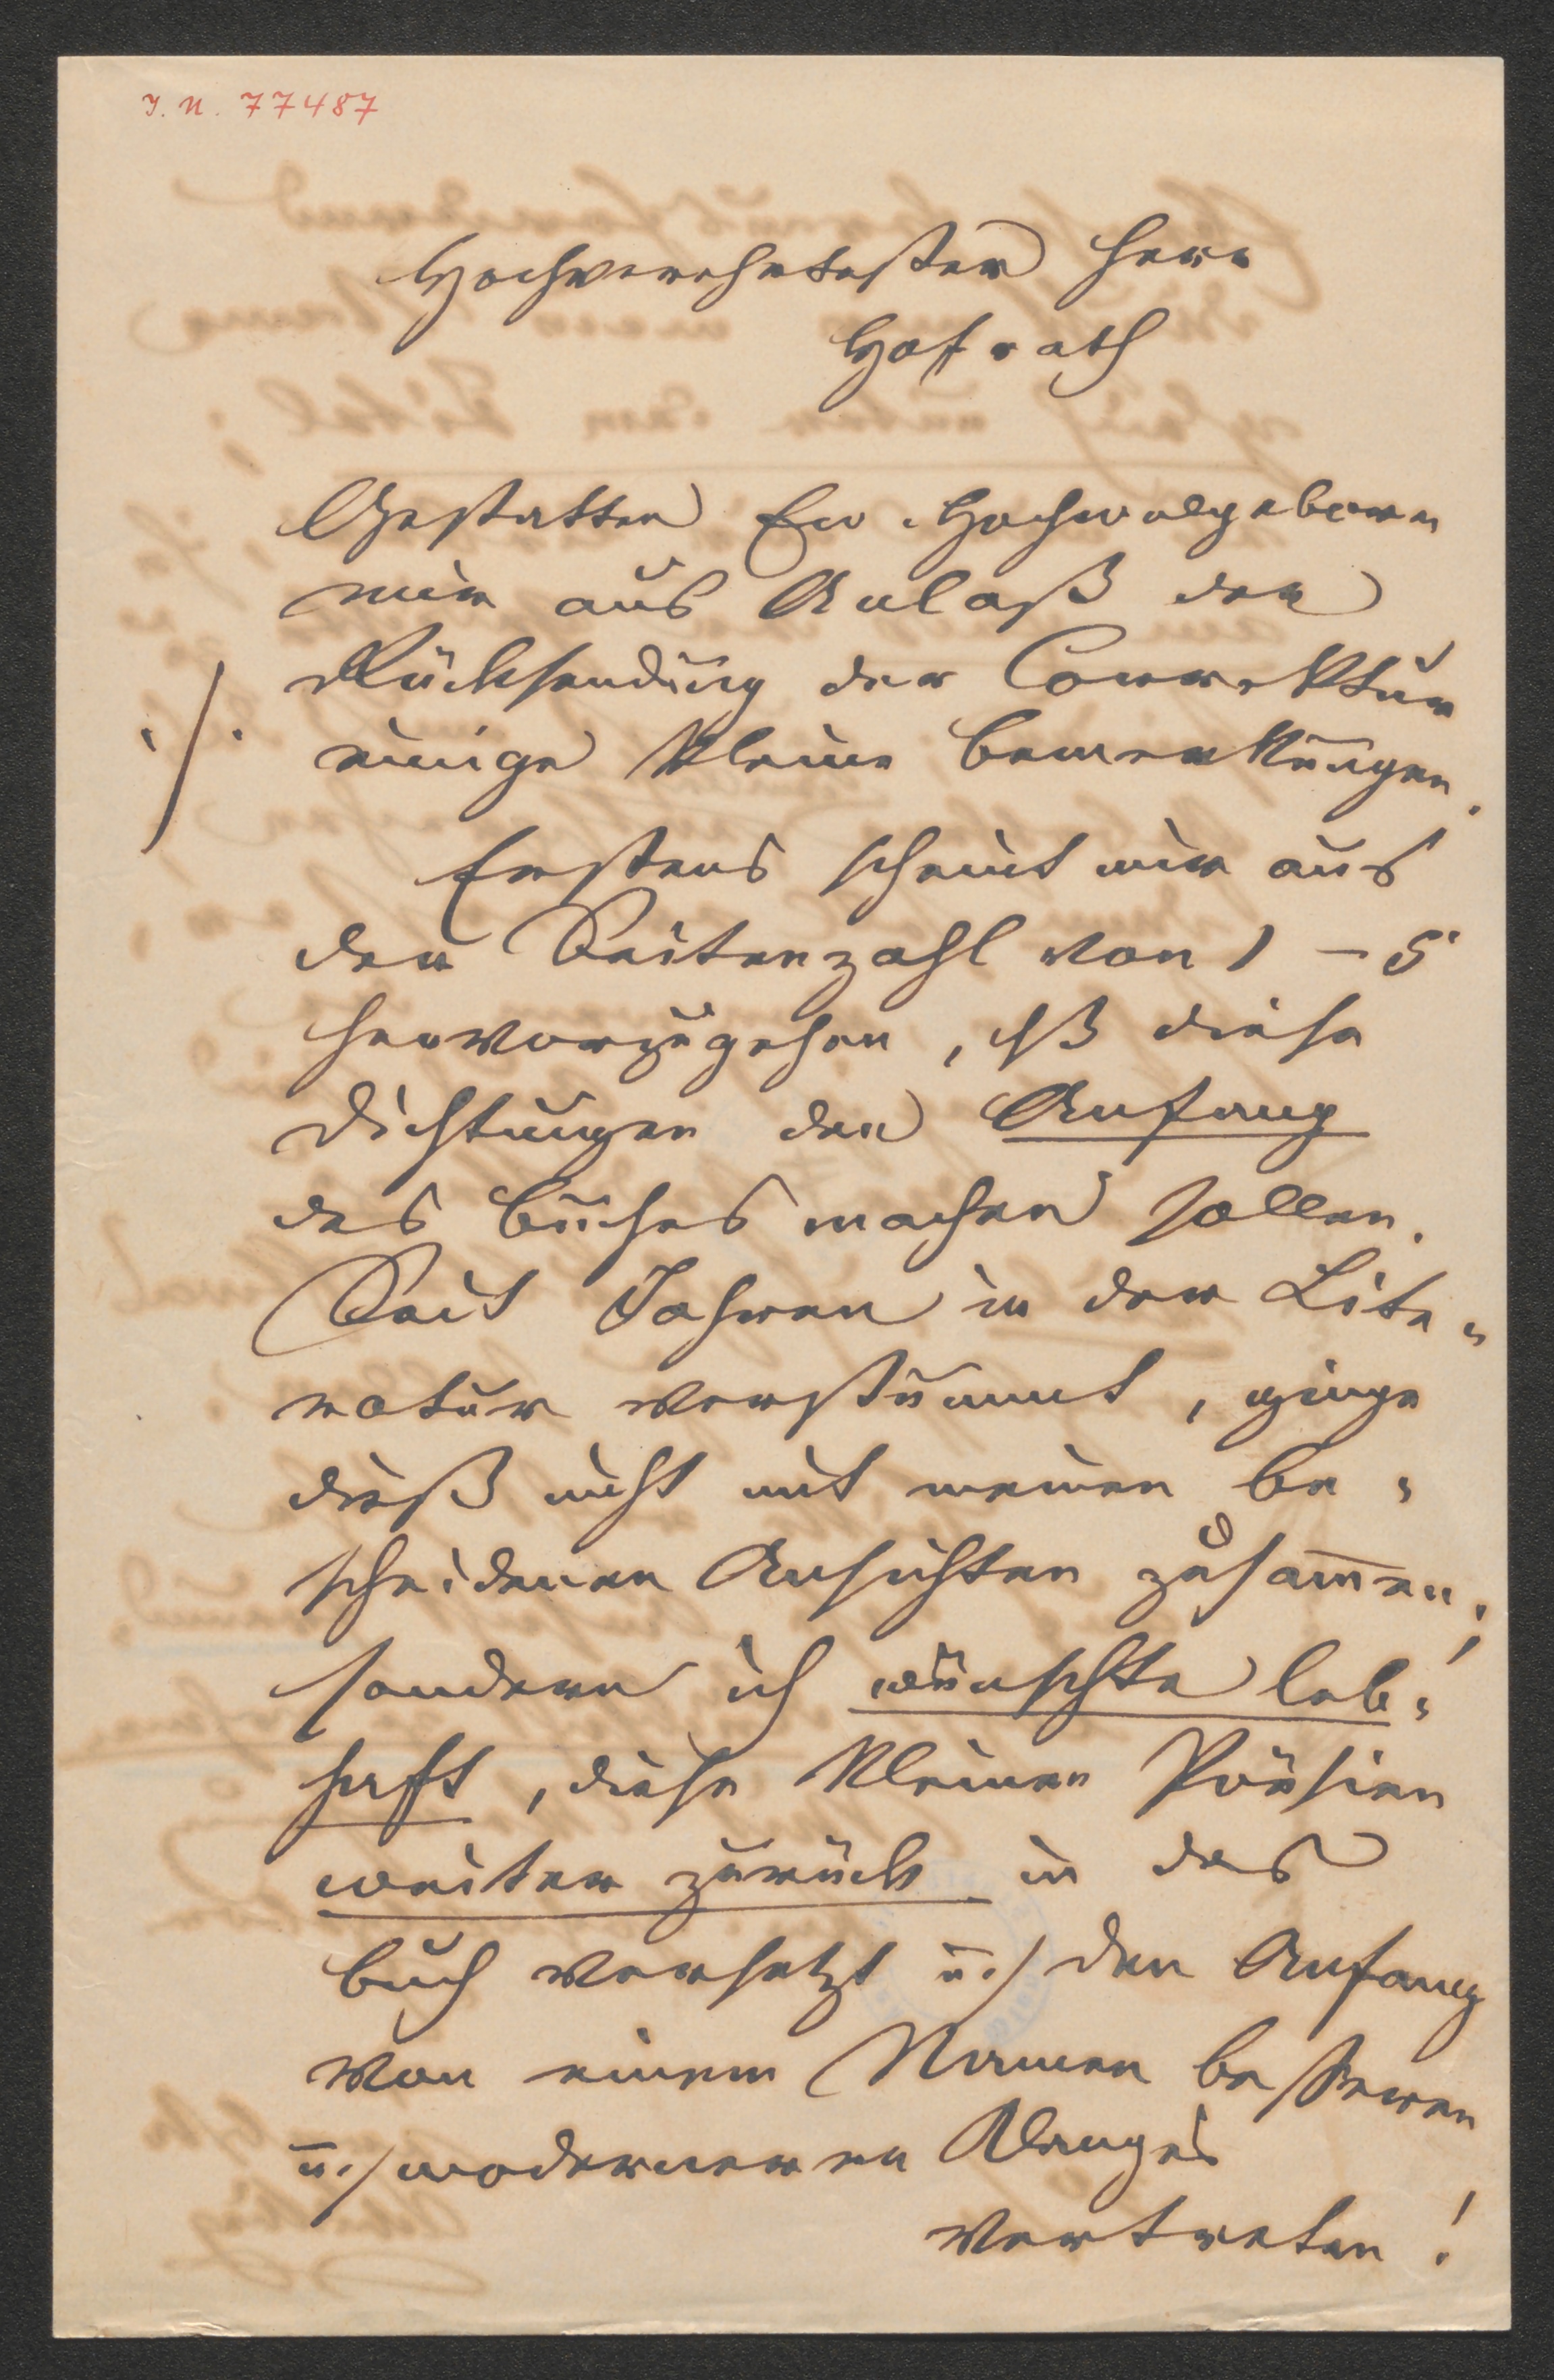 I. N. 77487
Hochverehrtester Herr
Hofrath
Gestatten Ew. Hochwolgeboren
mir aus Anlaß der
Rücksendung der Correktur
./. einige kleine Bemerkungen.
Erstens scheint mir aus
der Seitenzahl von 1 – 5
hervorzugehen, dß diese
Dichtungen den Anfang
des Buches machen sollen.
Seit Jahren in der Lite-
ratur verstummt, ginge
dieß nicht mit meinen be-
scheidenen Ansichten zusam̅en;
sondern ich wünschte leb-
haft, diese kleinen Poësien
weiter zurück in das
Buch versetzt u./ den Anfang
von einem Namen besseren
u./ moderneren Klanges
vertreten!